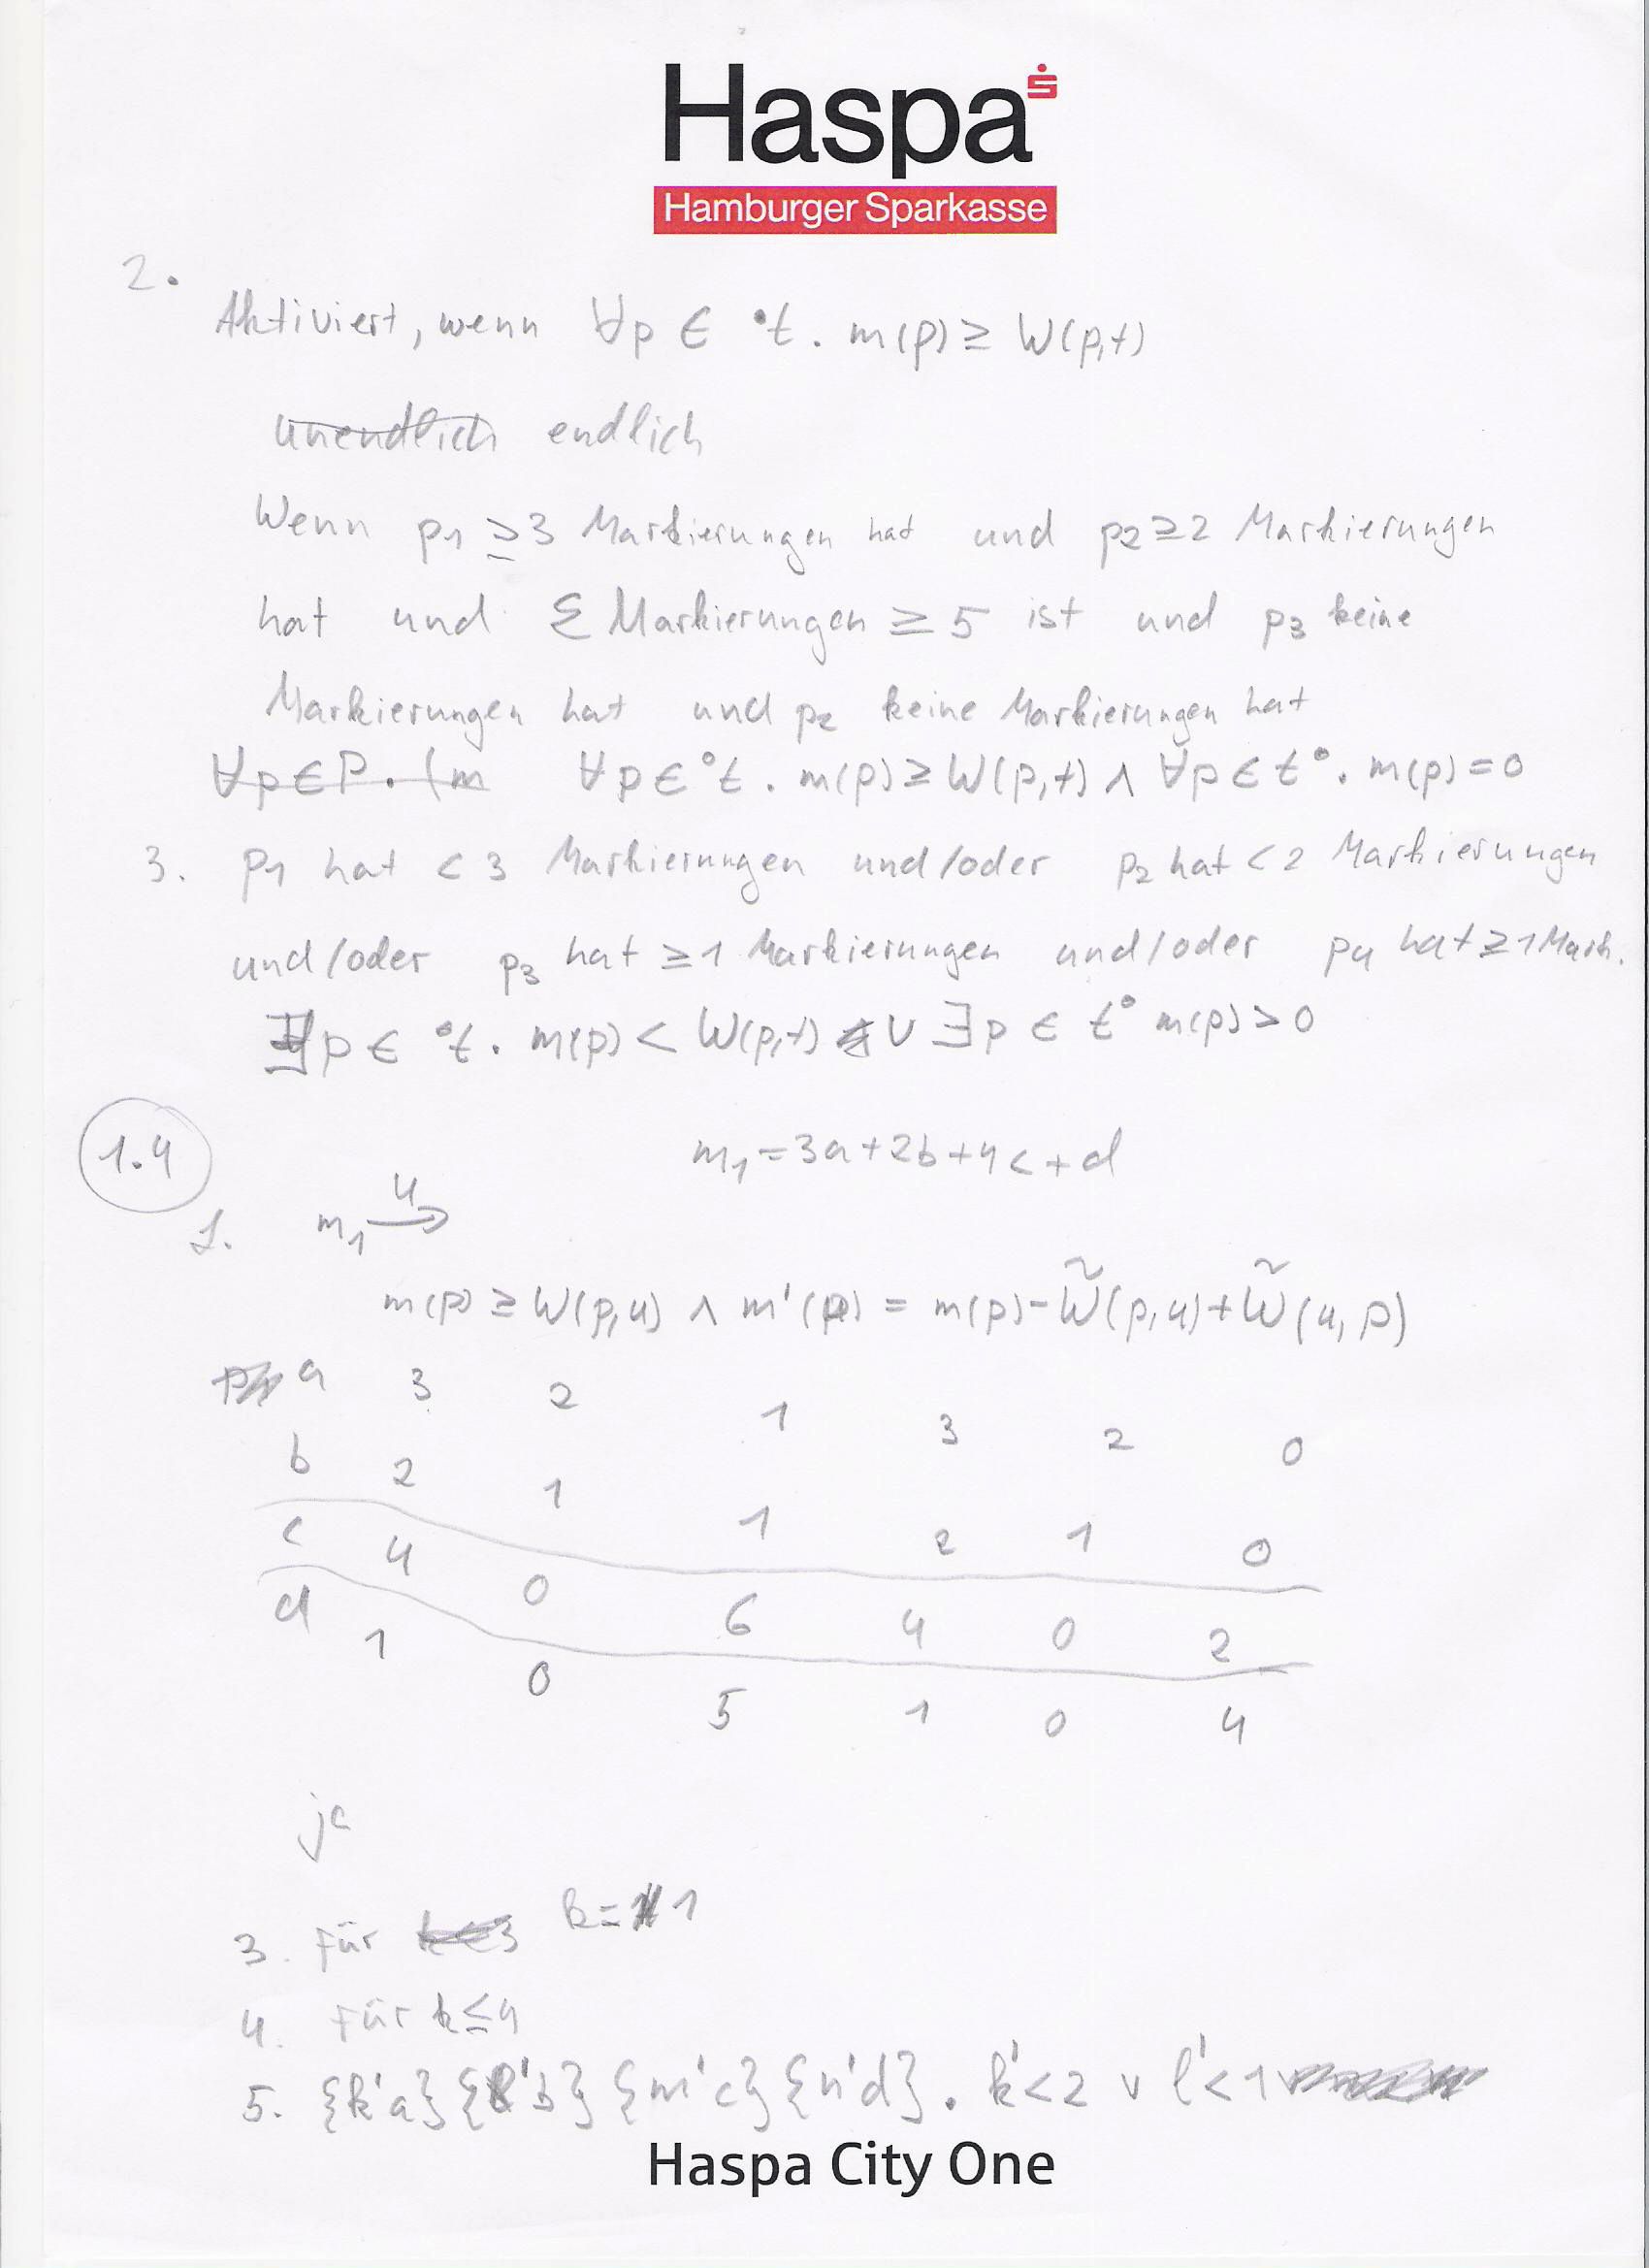 Haspa
Hamburger Sparkasse
2.
Aktiviert, wenn ∀p ∈ •t. m(p) ≥ W(p,t)
unendlich endlich
Wenn p1 ≥ 3 Markierungen hat und p2 ≥ 2 Markierungen
hat und Σ Markierungen ≥ 5 ist und p3 keine
Markierungen hat und p2 keine Markierungen hat
∀p ∈ P. (m ∀p ∈ °t. m(p) ≥ W(p,t) ∧ ∀p ∈ t°. m(p) = 0
3. p1 hat < 3 Markierungen und/oder p2 hat < 2 Markierungen
und/oder p3 hat ≥ 1 Markierungen und/oder p4 hat ≥ 1 Mark.
∃p ∈ °t. m(p) < W(p,t) ∨ ∃p ∈ t° m(p) > 0
1.4 m1 = 3a + 2b + 4c + d
1. m1 →u
m(p) ≥ W(p,u) ∧ m'(p) = m(p) - W̃(p,u) + W̃(u,p)
a 3 2 1 3 2 0
b 2 1 1 2 1 0
c 4 0 6 4 0 2
d 1 0 5 1 0 4
ja
3. Für k≤3 k = 1
4. Für k ≤ 4
5. {k'a} {l'b} {m'c} {n'd}. k' < 2 ∨ l' < 1
Haspa City One